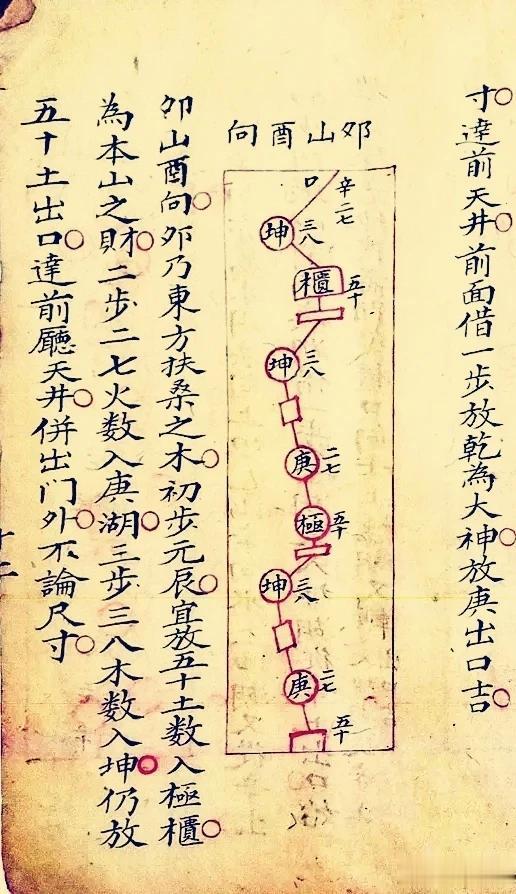 寸達前天井前面借一步放乾為大神放庚出口吉
夘山酉向
口
辛二七
坤
三八
櫃
五十
坤
三八
庚
二七
極
五十
坤
三八
庚
二七
五十
夘山酉向夘乃東方扶桑之木初步元辰宜放五十土數入極櫃
為本山之財二步二七火数入庚湖三步三八木数入坤仍放
五十土出口達前廳天井併出门外不論尺寸